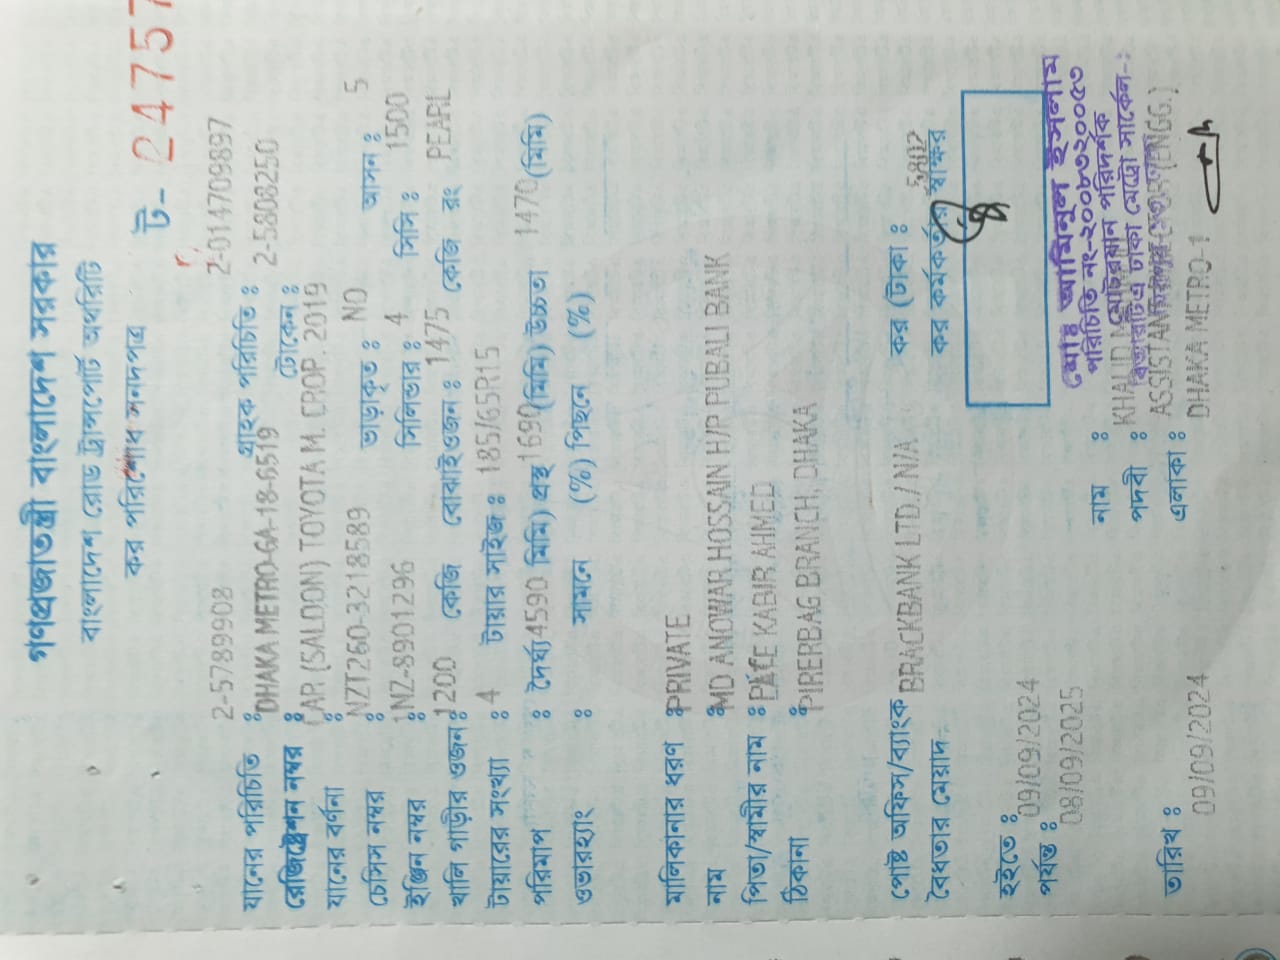 গণপ্রজাতন্ত্রী বাংলাদেশ সরকার
বাংলাদেশ রোড ট্রান্সপোর্ট অথরিটি
কর পরিশোধ সনদপত্র
ট- 24757
2-014709897
যানের পরিচিতি : 2-5789908 গ্রাহক পরিচিতি : 2-5808250
রেজিষ্ট্রেশন নম্বর : DHAKA METRO-GA-18-6519 টোকেন :
যানের বর্ণনা : CAR (SALOON) TOYOTA M. CROP. 2019
চেসিস নম্বর : NZT260-3218589 ভাড়াকৃত : NO আসন : 5
ইঞ্জিন নম্বর : 1NZ-8901296 সিলিন্ডার : 4 সিসি : 1500
খালি গাড়ীর ওজন : 1200 কেজি বোঝাইওজন : 1475 কেজি রং PEARL
টায়ারের সংখ্যা : 4 টায়ার সাইজ : 185/65R15
পরিমাপ : দৈর্ঘ্য 4590 মিমি) প্রস্থ 1690 (মিমি) উচ্চতা 1470 (মিমি)
ওভারহ্যাং : সামনে (%) পিছনে (%)
মালিকানার ধরণ : PRIVATE
নাম : MD ANOWAR HOSSAIN H/P PUBALI BANK
পিতা/স্বামীর নাম : KABIR AHMED
ঠিকানা : PIRERBAG BRANCH, DHAKA
পোষ্ট অফিস/ব্যাংক BRACKBANK LTD / N/A কর (টাকা) : 5802
বৈধতার মেয়াদ- কর কর্মকর্তার স্বাক্ষর
হইতে : 09/09/2024
পর্যন্ত : 08/09/2025
মোঃ আমিনুল ইসলাম
পরিচিতি নং-২০০৮৭৩২০০৫৩
মোটরযান পরিদর্শক
বিআরটিএ ঢাকা মেট্রো সার্কেল-১
নাম : KHALID
পদবী : ASSISTANT (ENGG.)
এলাকা : DHAKA METRO-1
তারিখ : 09/09/2024